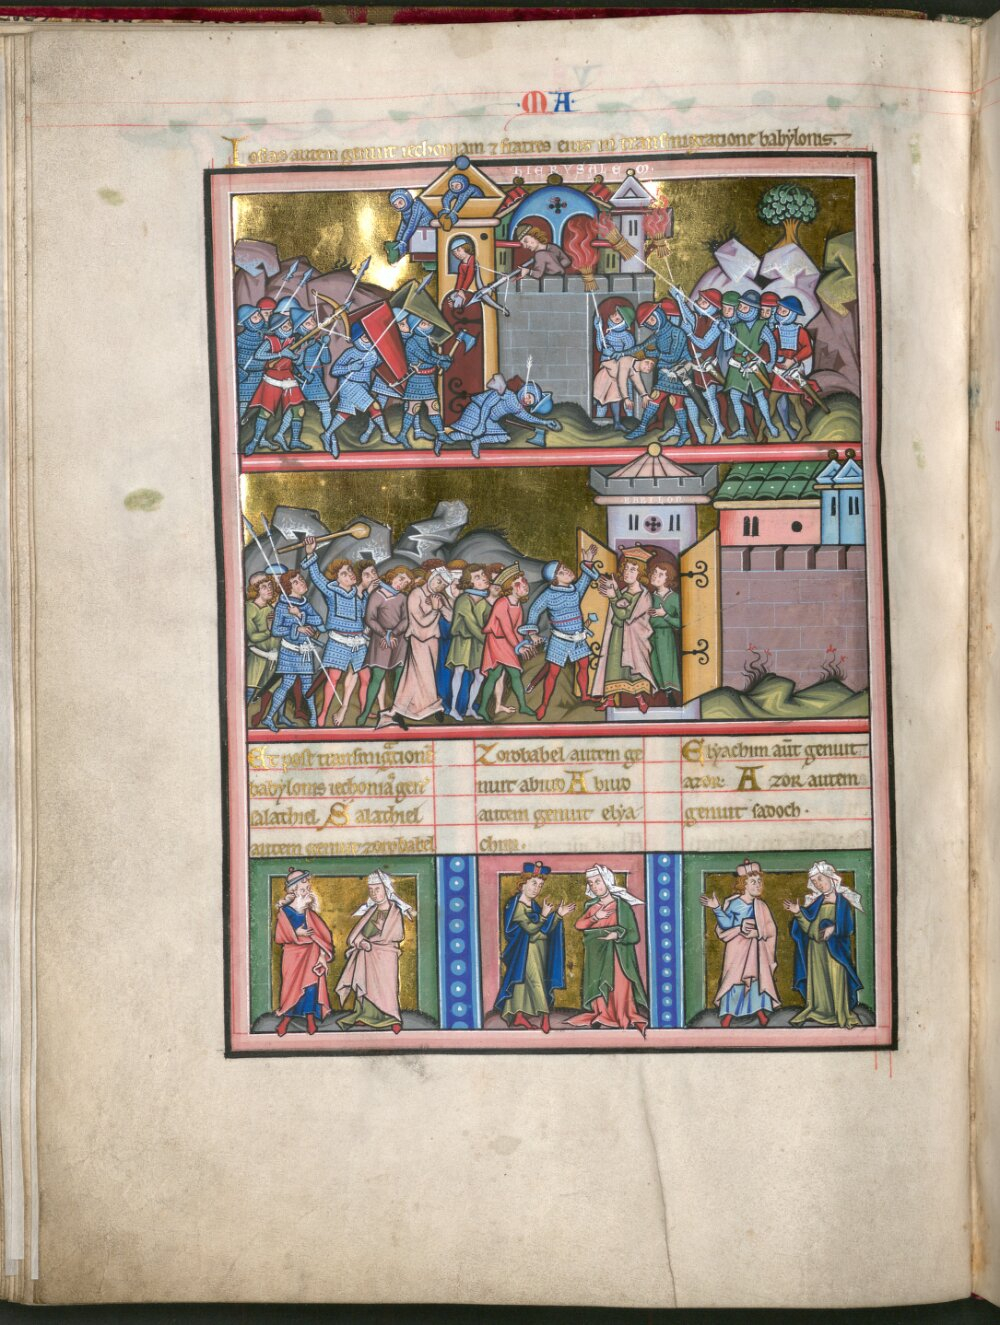 · M A ·
Iosias autem genuit iechoniam ⁊ fratres eius in transmigratione babylonis.
HIERVSALEM
BABILON
Et post transmigrationē
babylonis iechonia gen̄
salathiel. Salathiel
autem genuit zorobabel
Zorobabel autem ge
nuit abiud Abiud
autem genuit elya
chim.
Elyachim aūt genuit
azor. Azor autem
genuit sadoch.